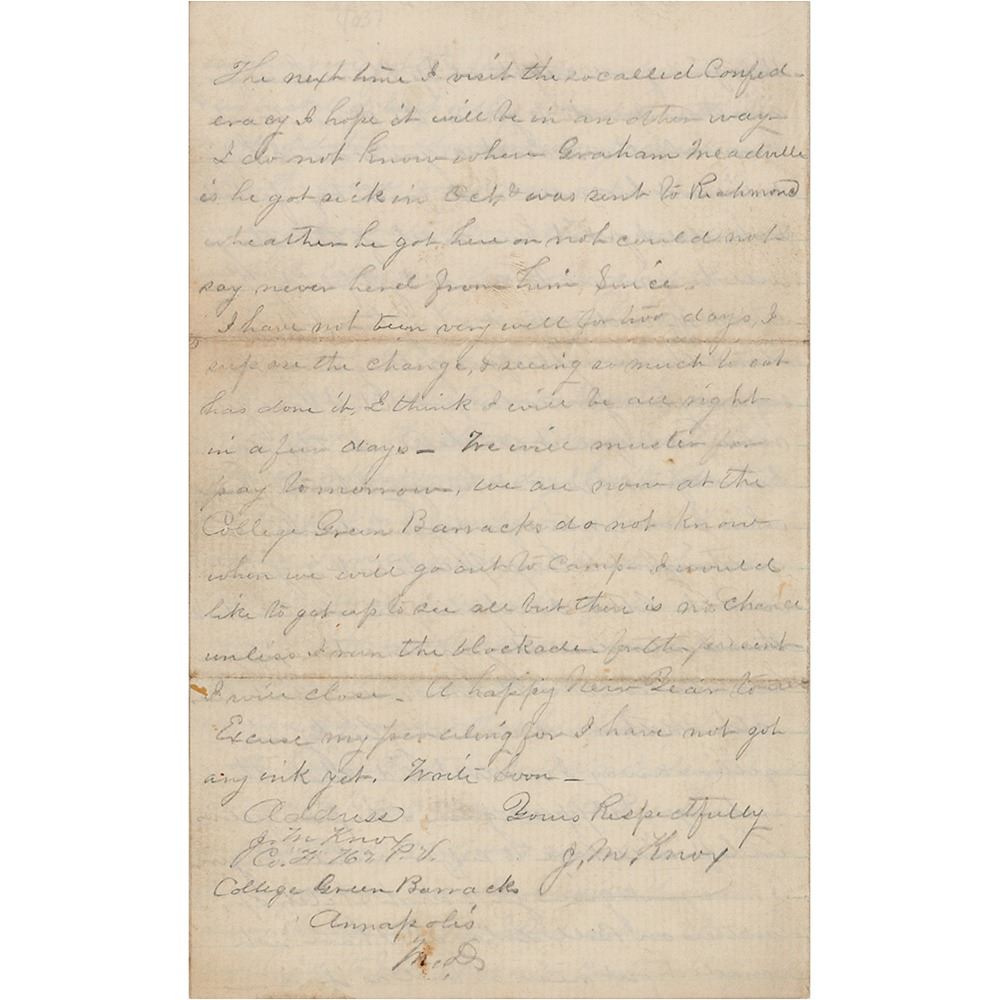 The next time I visit the socalled Confed-
eracy I hope it will be in an other way
I do not know where Graham Meadville
is he got sick in Oct & was sent to Richmond
wheather he got here or not could not
say never herd from him Since.
I have not been very well for two days, I
supose the change, & seeing so much to eat
has done it, I think I will be all right
in a few days - We will muster for
pay tomorrow, we are now at the
College Green Barracks do not know
when we will go out to Camp I would
like to get up to see all but there is no chance
unless I run the blockade for the present
I will close - A happy New Year to all
Excuse my penciling for I have not got
any ink yet. Write Soon -
Address Yours Respectfully
J. M Knox J, M Knox
Co. P.V.
College Green Barracks
Annapolis
M.D.